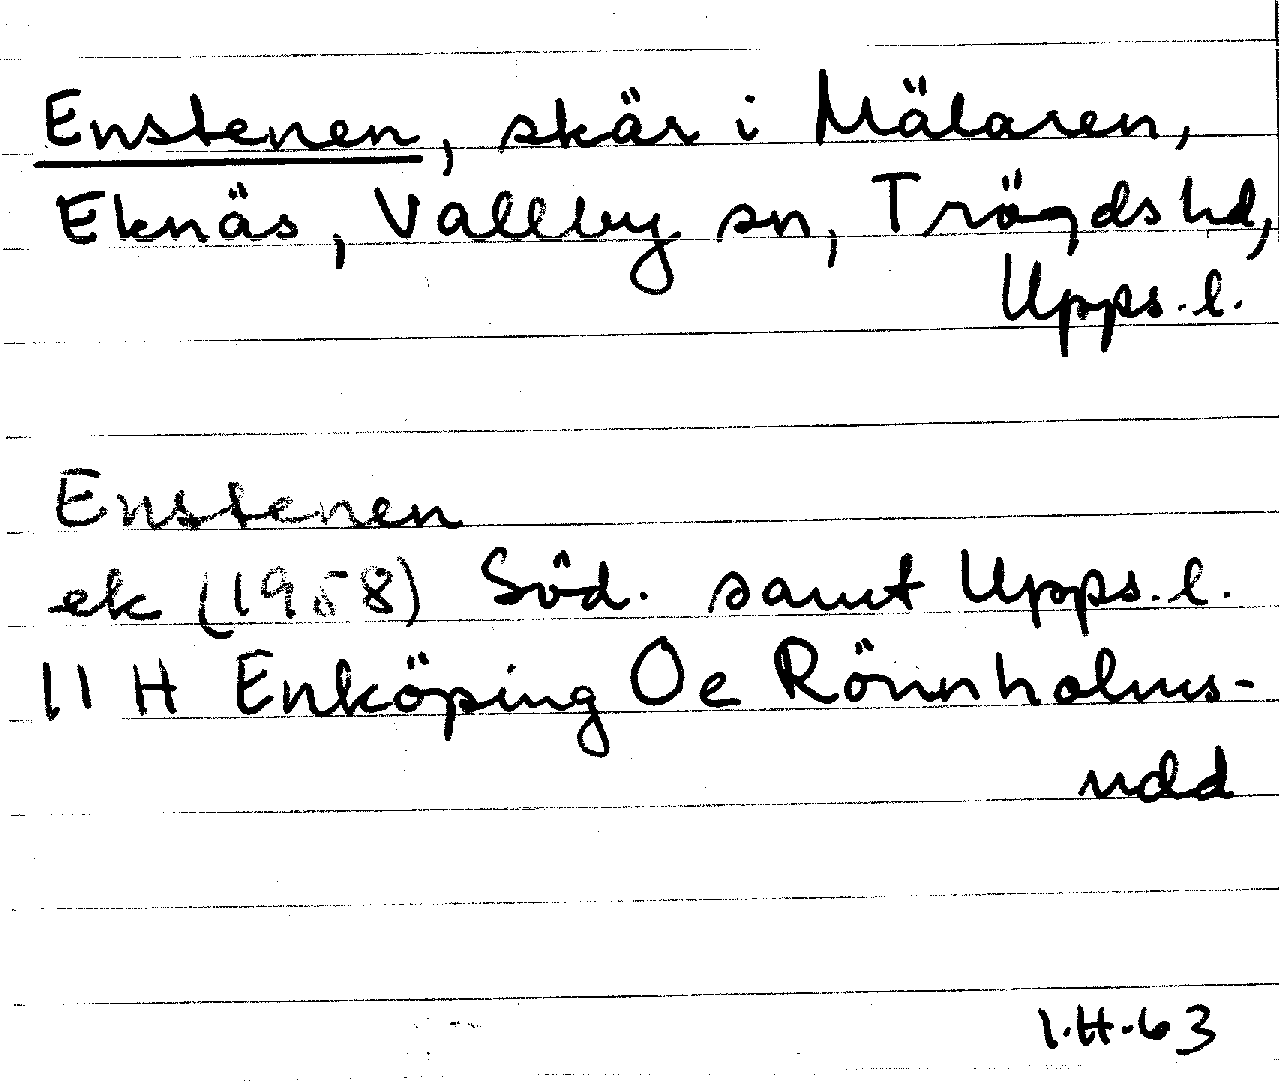 Enstenen, skär i Mälaren,
Eknäs, Vallby sn, Trögds hd,
Upps. l.
Enstenen
ek (1958) Söd. samt Upps. l.
11 H Enköping Oe Rönnholms-
udd
I.H.63